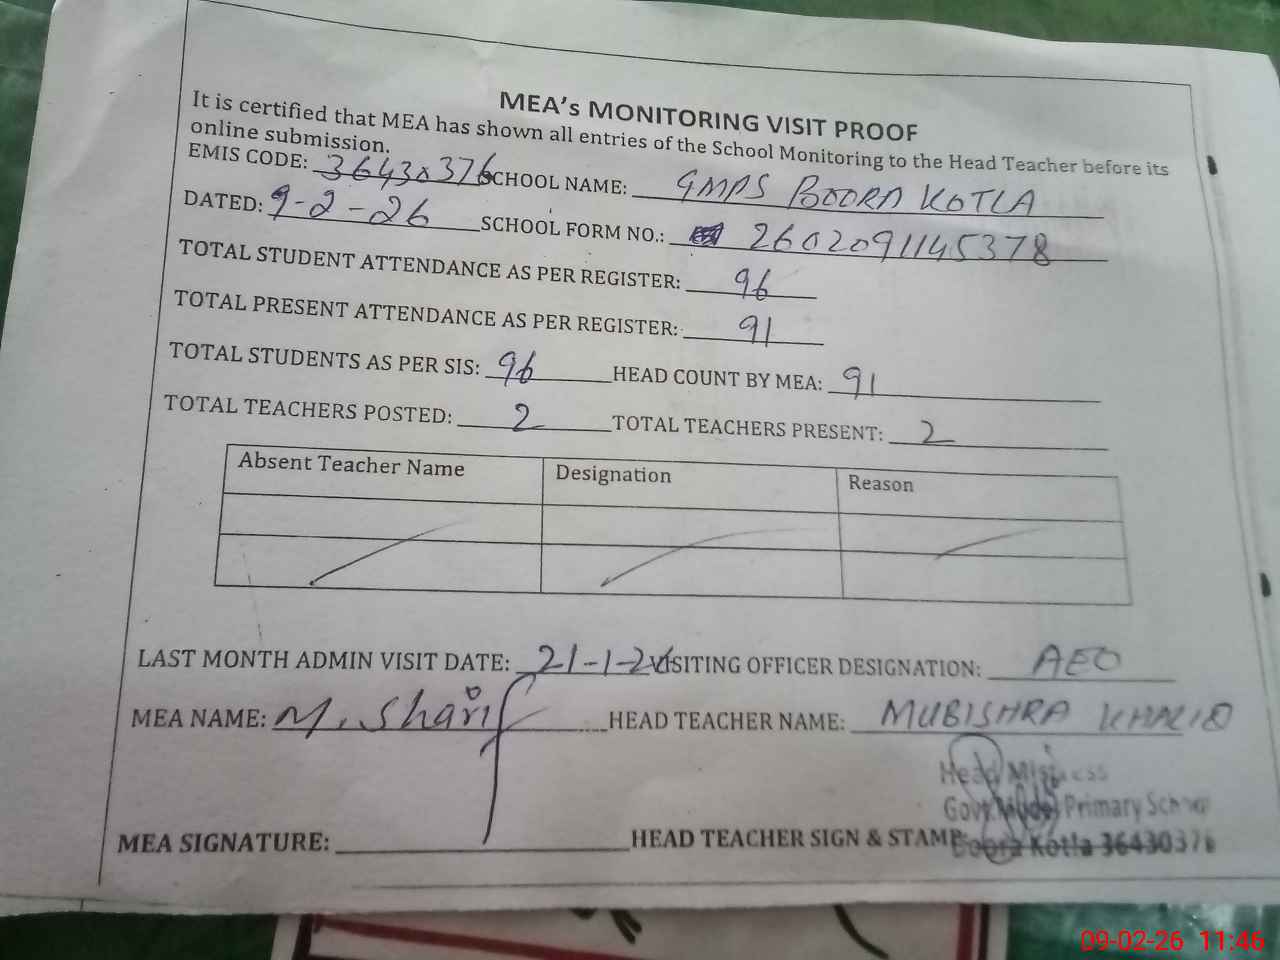 MEA's MONITORING VISIT PROOF
It is certified that MEA has shown all entries of the School Monitoring to the Head Teacher before its
online submission.
EMIS CODE: 36430376 SCHOOL NAME: GMPS BOORA KOTLA
DATED: 9-2-26 SCHOOL FORM NO.: 2602091145378
TOTAL STUDENT ATTENDANCE AS PER REGISTER: 96
TOTAL PRESENT ATTENDANCE AS PER REGISTER: 91
TOTAL STUDENTS AS PER SIS: 96 HEAD COUNT BY MEA: 91
TOTAL TEACHERS POSTED: 2 TOTAL TEACHERS PRESENT: 2
Absent Teacher Name Designation Reason
LAST MONTH ADMIN VISIT DATE: 21-1-26 VISITING OFFICER DESIGNATION: AEO
MEA NAME: M. Sharif HEAD TEACHER NAME: MUBISHRA KHALID
Head Mistress
Govt. Model Primary School
MEA SIGNATURE: HEAD TEACHER SIGN & STAMP: Boora Kotla 36430376
09-02-26 11:46